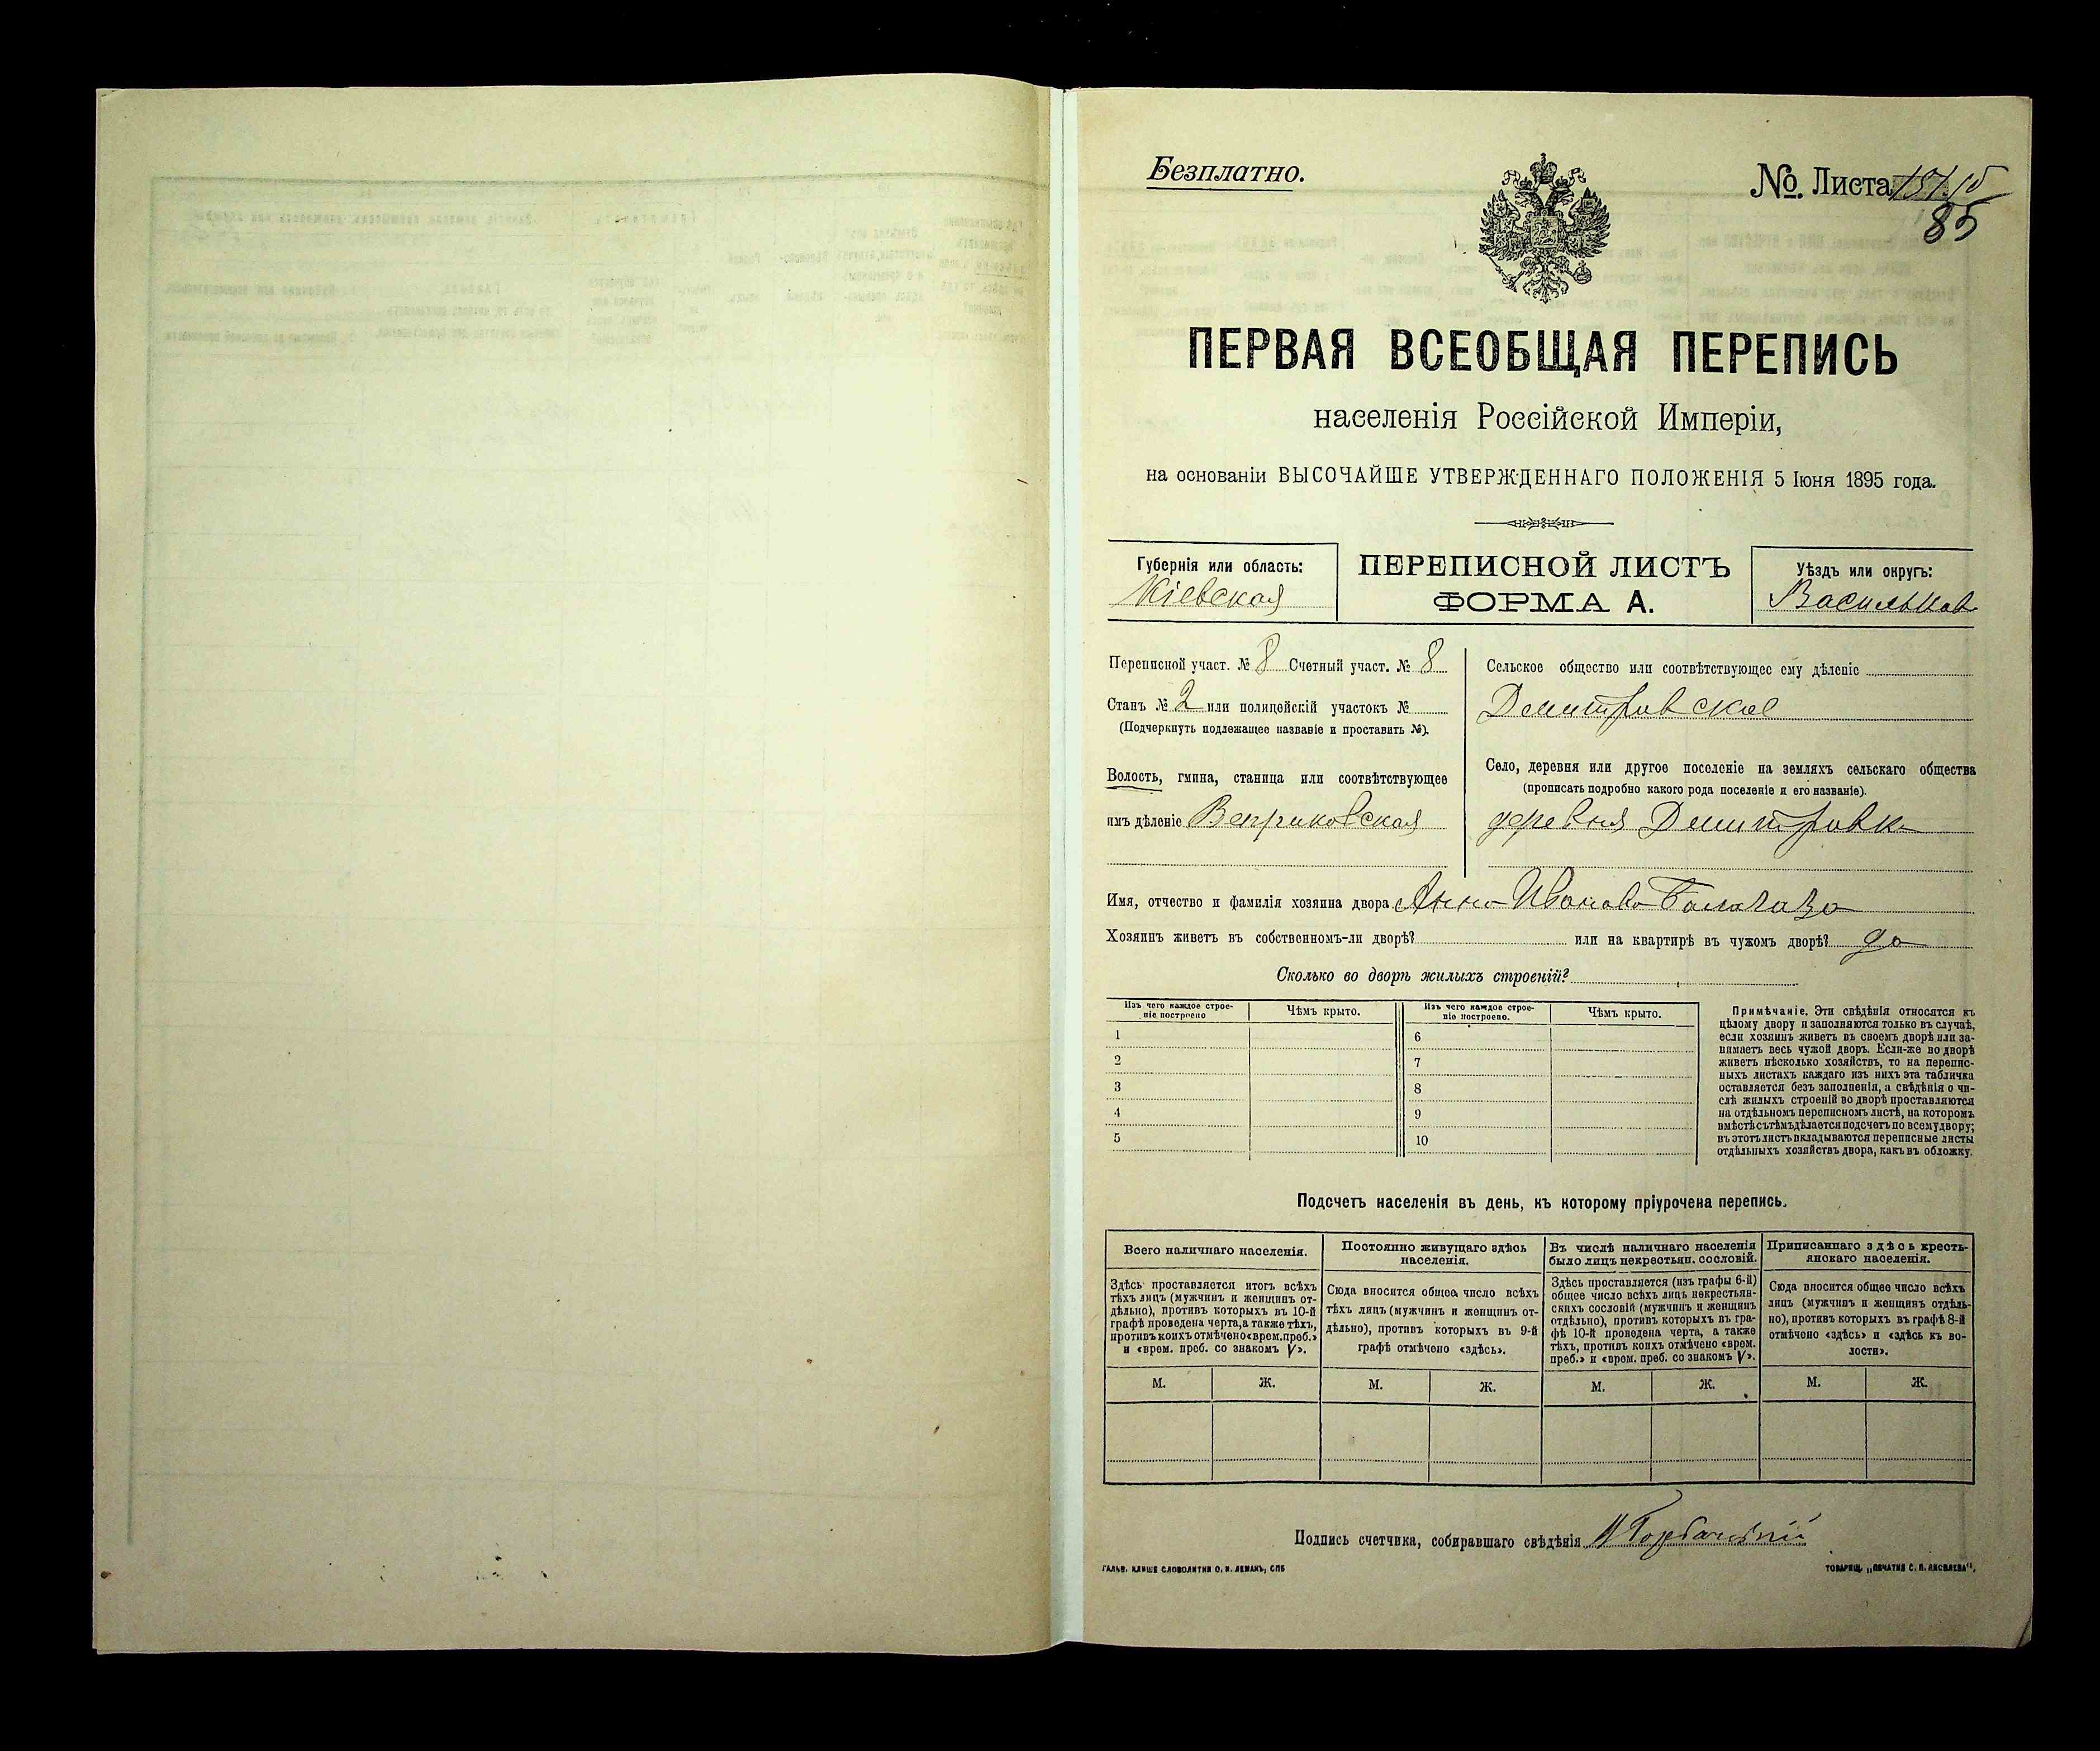 Безплатно.
№ Листа
85
ПЕРВАЯ ВСЕОБЩАЯ ПЕРЕПИСЬ
населенія Россійской Имперіи,
на основаніи ВЫСОЧАЙШЕ УТВЕРЖДЕННАГО ПОЛОЖЕНІЯ 5 Іюня 1895 года.
Губернія или область:
Кіевская
ПЕРЕПИСНОЙ ЛИСТЪ
ФОРМА А.
Уѣздъ или округъ:
Васильков
Переписной участ. № 8 Счетный участ. № 8
Станъ № 2 или полицейскій участокъ №
(Подчеркнуть подлежащее названіе и проставить №).
Волость, гмина, станица или соотвѣтствующее
имъ дѣленіе Веприковская
Сельское общество или соотвѣтствующее ему дѣленіе
Дмитровское
Село, деревня или другое поселеніе на земляхъ сельскаго общества
(прописать подробно какого рода поселеніе и его названіе).
деревня Дмитровка
Имя, отчество и фамилія хозяина двора Анна Иванова
Хозяинъ живетъ въ собственномъ-ли дворѣ? или на квартирѣ въ чужомъ дворѣ? да
Сколько во дворѣ жилыхъ строеній?
Изъ чего каждое строе-
ніе построено
Чѣмъ крыто.
Изъ чего каждое строе-
ніе построено.
Чѣмъ крыто.
1
6
2
7
3
8
4
9
5
10
Примѣчаніе. Эти свѣдѣнія относятся къ
цѣлому двору и заполняются только въ случаѣ,
если хозяинъ живетъ въ своемъ дворѣ или за-
нимаетъ весь чужой дворъ. Если-же во дворѣ
живетъ нѣсколько хозяйствъ, то на перепис-
ныхъ листахъ каждаго изъ нихъ эта табличка
оставляется безъ заполненія, а свѣдѣнія о чи-
слѣ жилыхъ строеній во дворѣ проставляются
на отдѣльномъ переписномъ листѣ, на которомъ
вмѣстѣ съ тѣмъ дѣлается подсчетъ по всему двору;
въ этотъ листъ вкладываются переписные листы
отдѣльныхъ хозяйствъ двора, какъ въ обложку.
Подсчетъ населенія въ день, къ которому пріурочена перепись.
Всего наличнаго населенія.
Здѣсь проставляется итогъ всѣхъ
тѣхъ лицъ (мужчинъ и женщинъ от-
дѣльно), противъ которыхъ въ 10-й
графѣ проведена черта, а также тѣхъ,
противъ коихъ отмѣчено «врем. преб.»
и «врем. преб. со знакомъ V».
Постоянно живущаго здѣсь
населенія.
Сюда вносится общее число всѣхъ
тѣхъ лицъ (мужчинъ и женщинъ от-
дѣльно), противъ которыхъ въ 9-й
графѣ отмѣчено «здѣсь».
Въ числѣ наличнаго населенія
было лицъ некрестьян. сословій.
Здѣсь проставляется (изъ графы 6-й)
общее число всѣхъ лицъ некрестьян-
скихъ сословій (мужчинъ и женщинъ
отдѣльно), противъ которыхъ въ гра-
фѣ 10-й проведена черта, а также
тѣхъ, противъ коихъ отмѣчено «врем.
преб.» и «врем. преб. со знакомъ V».
Приписаннаго здѣсь кресть-
янскаго населенія.
Сюда вносится общее число всѣхъ
лицъ (мужчинъ и женщинъ отдѣль-
но), противъ которыхъ въ графѣ 8-й
отмѣчено «здѣсь» и «здѣсь къ во-
лости».
М. Ж. М. Ж. М. Ж. М. Ж.
Подпись счетчика, собиравшаго свѣдѣнія
ГАЛЬВ. КЛИШЕ СЛОВОЛИТНИ О. И. ЛЕМАНЪ, СПБ
ТОВАРИЩ. „ПЕЧАТНЯ С. П. ЯКОВЛЕВА".